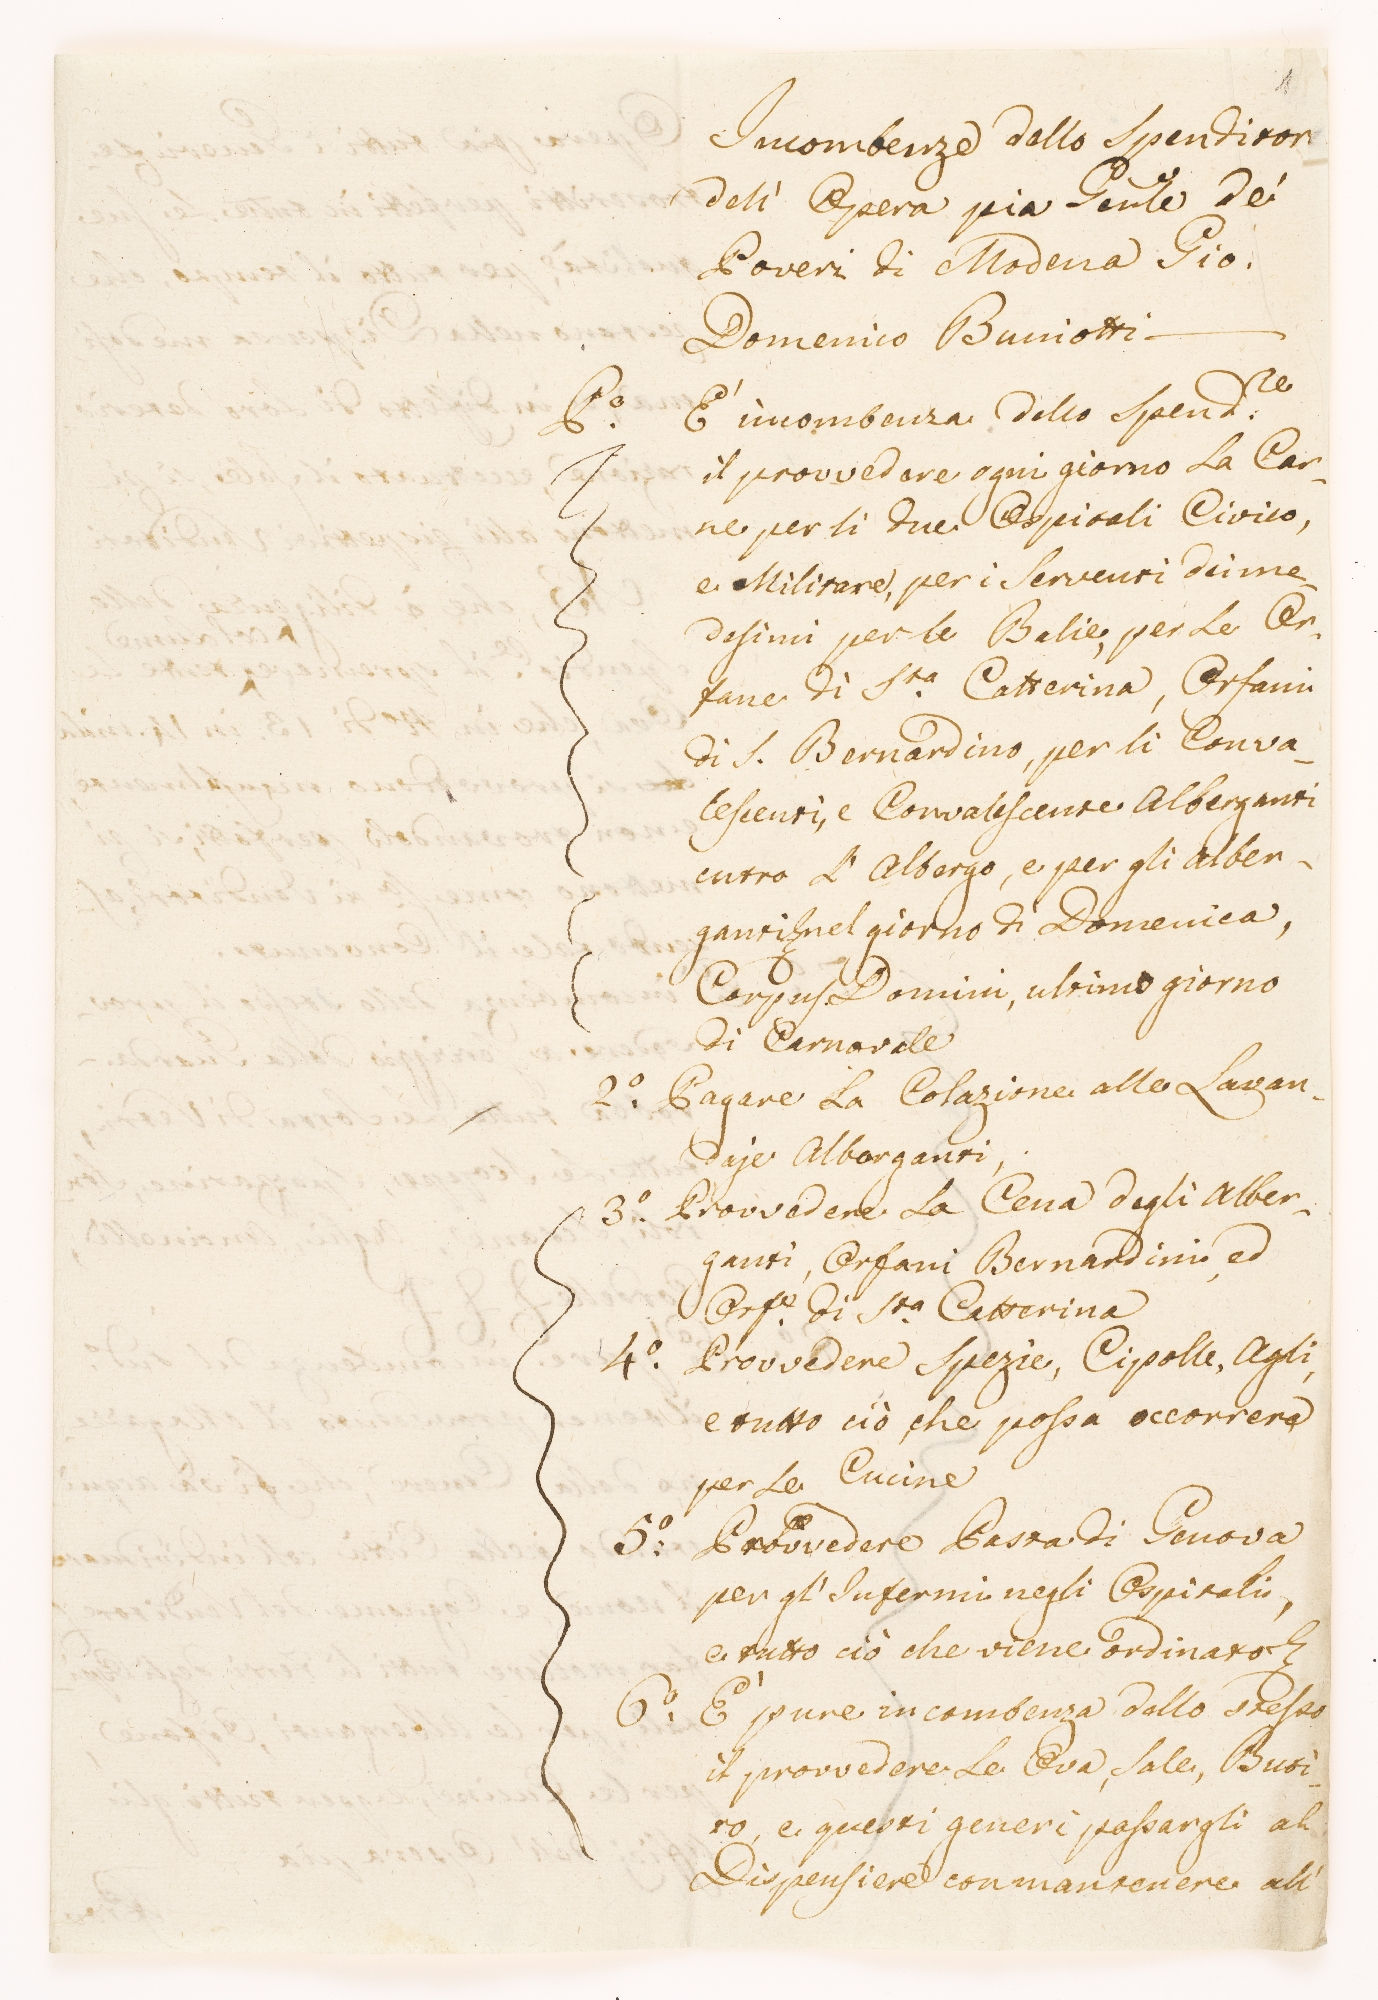 Incombenze dello Spenditor
dell' Opera pia Genle de'
Poveri di Modena Gio.
Domenico Buniotti
P.o E' incombenza dello Spend.re
il provvedere ogni giorno La Car-
ne per li due Ospitali Civico,
e Militare, per i Serventi dei me-
desimi per le Balie, per Le Or-
fane di S.ta Catterina, Orfani
di S. Bernardino, per li Conva-
lescenti, e Convalescente Alberganti
entro L' Albergo, e per gli Alber-
ganti nel giorno di Domenica,
Corpus Domini, ultimo giorno
di Carnovale
2.o Pagare La Colazione alle Lavan-
daje Alberganti,
3.o Provvedere La Cena degli Alber-
ganti, Orfani Bernardini, ed
Orf.e di S.ta Catterina
4.o Provvedere Spezie, Cipolle, Agli,
e tutto ciò che possa occorrere
per Le Cucine
5.o Provvedere Pasta di Genova
per gl' Infermi negli Ospitali,
e tutto ciò che viene ordinato
6.o E' pure incombenza dello stesso
il provvedere Le Ova, Sale, Buti-
ro, e questi generi passargli al
Dispensiere con mantenere all'